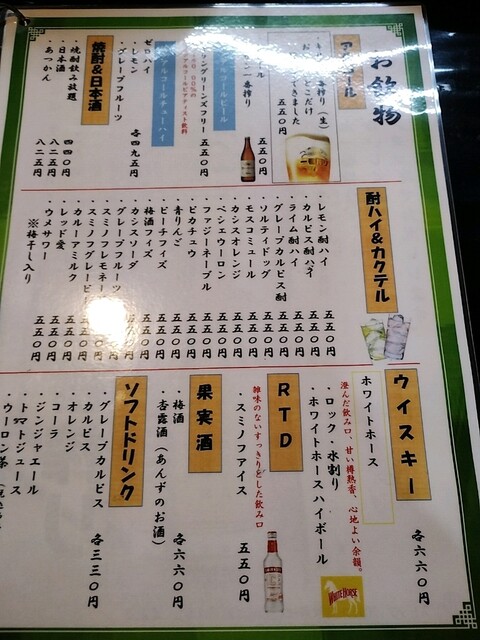 お飲物
キリン一番搾り(生)
五五〇円
五五〇円
ノンアルコールビール
グリーンズフリー
五五〇円
ノンアルコールチューハイ
ゼロハイ
・レモン
・グレープフルーツ
各四九五円
焼酎&日本酒
・焼酎飲み放題
四四〇円
・日本酒
八二五円
・あつかん
八二五円
酎ハイ&カクテル
・レモン酎ハイ
五五〇円
・カルピス酎ハイ
五五〇円
・ライム酎ハイ
五五〇円
・グレープカルピス酎
五五〇円
・ソルティドッグ
五五〇円
・モスコミュール
五五〇円
・カシスオレンジ
五五〇円
・ペシェウーロン
五五〇円
・ファジーネーブル
五五〇円
・ピカチュウ
五五〇円
・青りんご
五五〇円
・ピーチフィズ
五五〇円
・梅酒フィズ
五五〇円
・カシスソーダ
五五〇円
・グレープフルーツ
五五〇円
・スミノフレモネー
・スミノフグレー
・カルーアミルク
五五〇円
・レッド愛
五五〇円
・ウメサワー
五五〇円
※梅干し入り
ウイスキー
各六六〇円
ホワイトホース
澄んだ飲み口、甘い樽熟香、心地よい余韻。
・ロック・水割り
・ホワイトホースハイボール
WHITE HORSE
RTD
雑味のないすっきりとした飲み口
・スミノフアイス
五五〇円
果実酒
・梅酒
・杏露酒(あんずのお酒)
各六六〇円
ソフトドリンク
・グレープカルピス
・カルピス
・オレンジ
・コーラ
・ジンジャエール
・トマトジュース
・ウーロン茶
各三三〇円